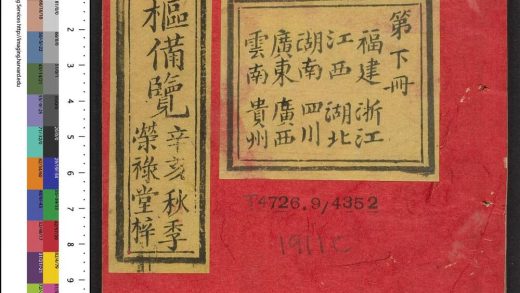 樞備覽
辛亥秋季
榮祿堂梓
第下冊
福建 浙江
江西 湖北
湖南 四川
廣東 廣西
雲南 貴州
T4726.9/4352
1911
2
3
4
5
6
7
8
9